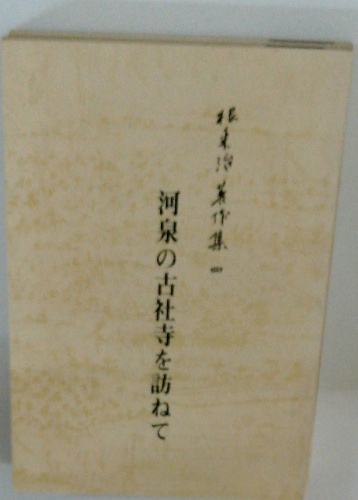 根来治著作集 四
河泉の古社寺を訪ねて